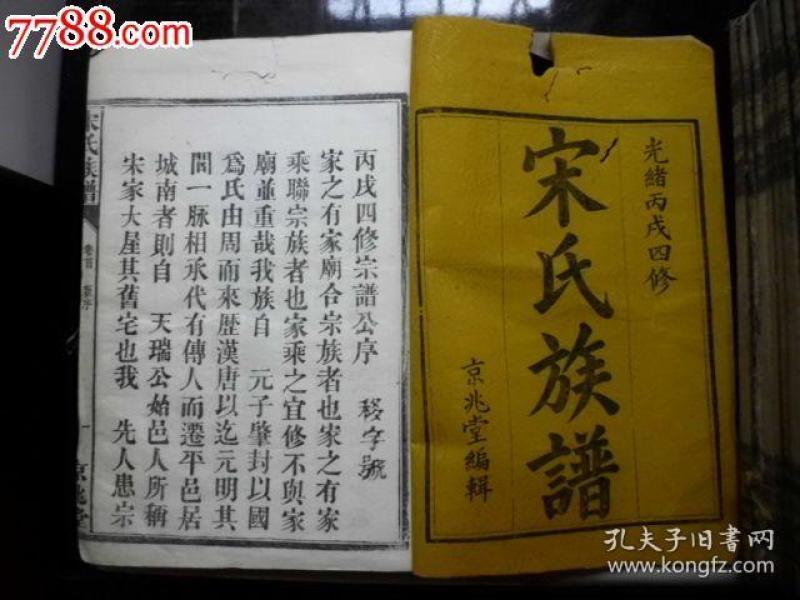 7788.com
光緒丙戌四修
宋氏族譜
京兆堂編輯
丙戌四修宗譜公序
稷字號
家之有家廟合宗族者也家之有家
乘聯宗族者也家乘之宜修不與家
廟並重哉我族自　元子肇封以國
爲氏由周而來歷漢唐以迄元明其
間一脉相承代有傳人而遷平邑居
城南者則自　天瑞公始邑人所稱
宋家大屋其舊宅也我　先人患宗
宋氏族譜
卷首
一
京兆堂
孔夫子旧书网
kongfz.com